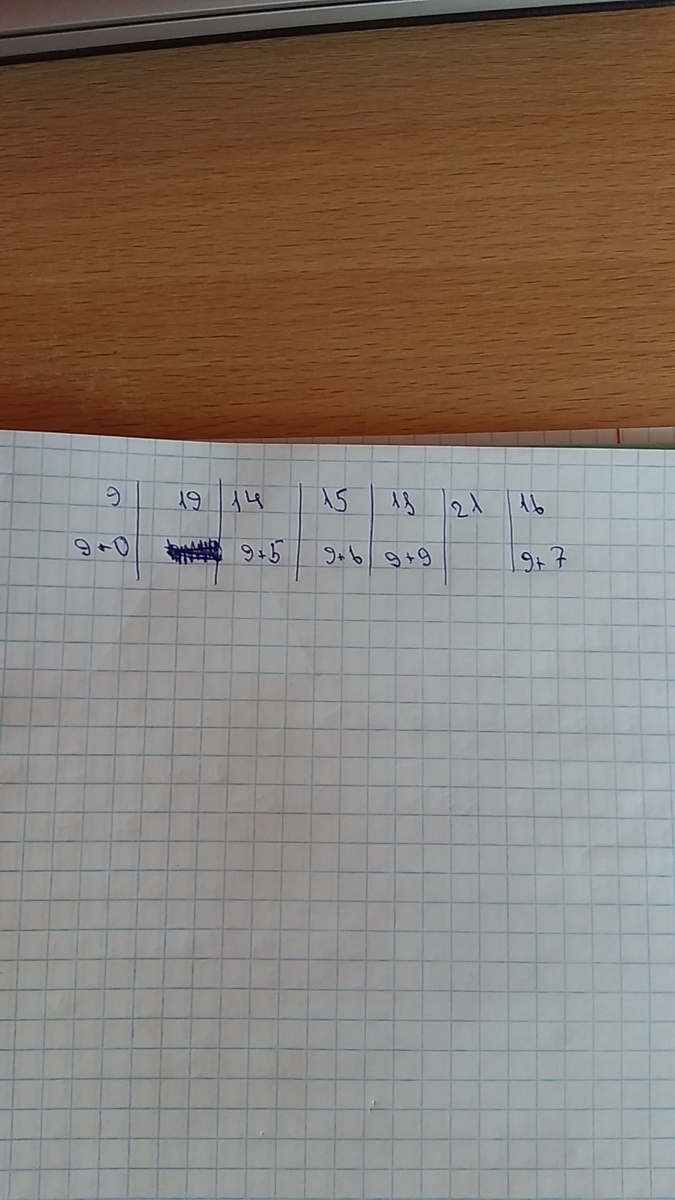 9 | 19 | 14 | 15 | 13 | 21 | 16
9+0 | | 9+5 | 9+6 | 9+9 | | 9+7